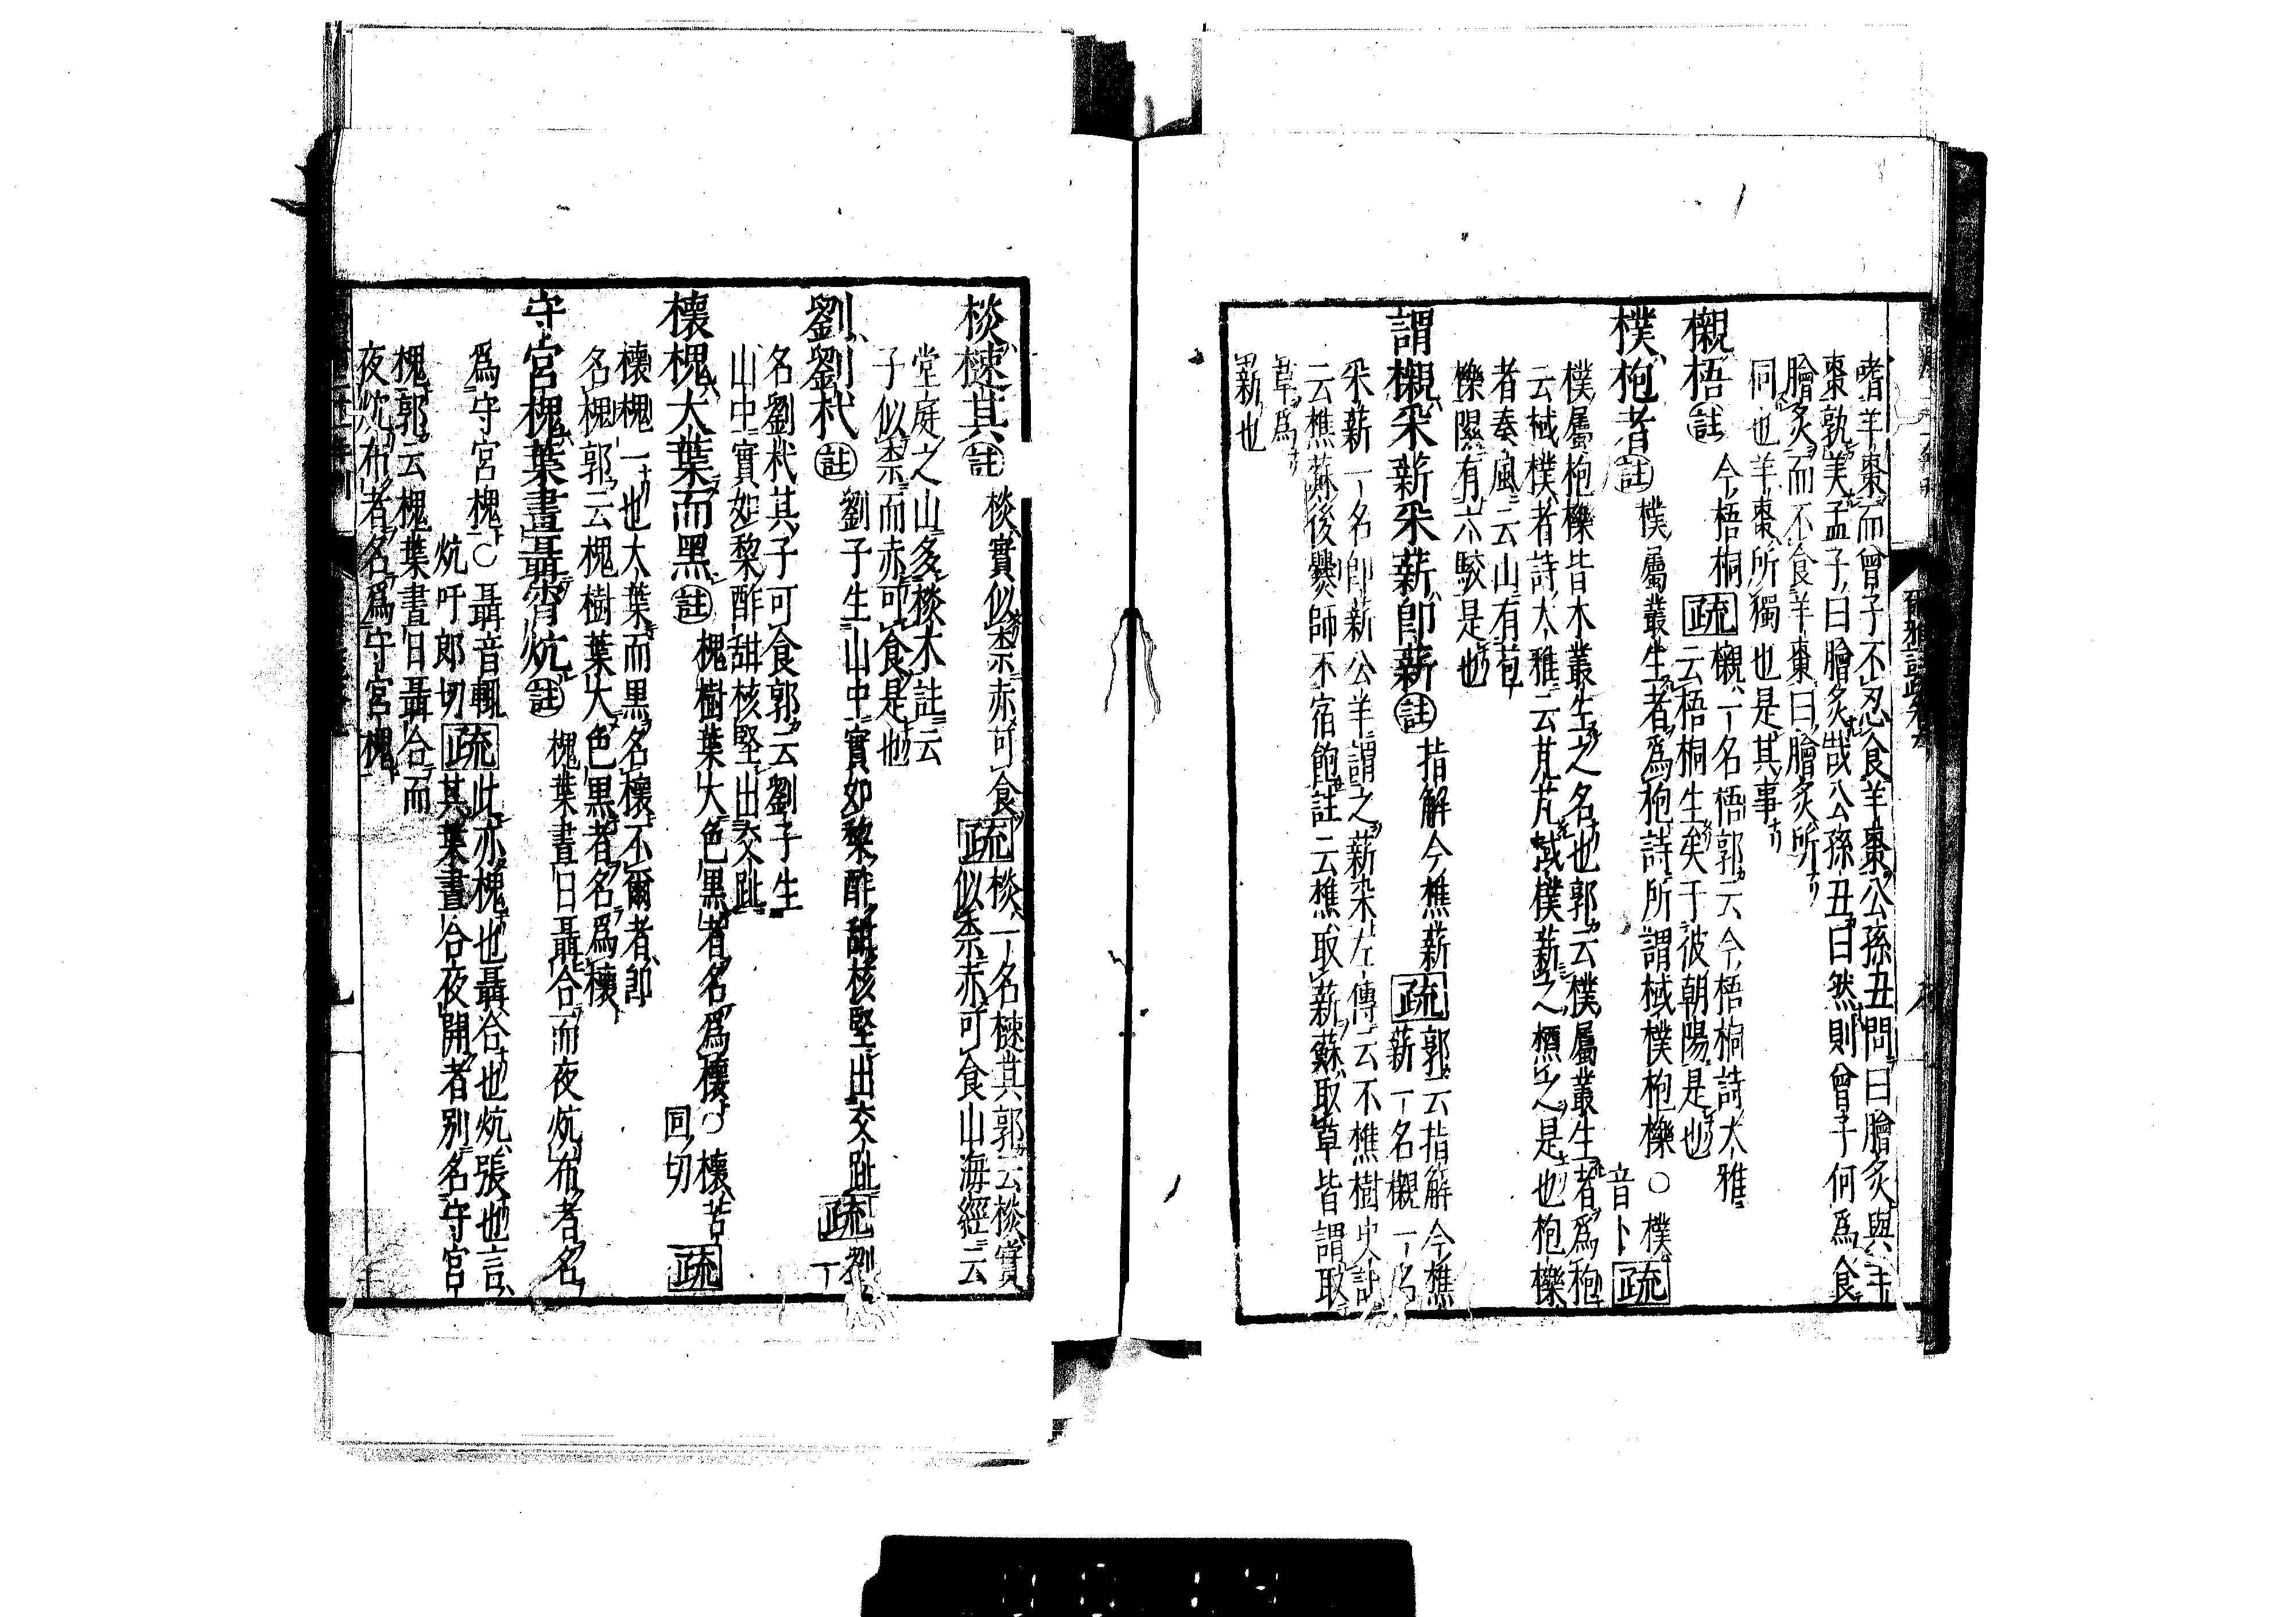 嗜羊棗而曾子不忍食羊棗公孫丑問曰膾炙與羊
棗孰美孟子曰膾炙哉公孫丑曰然則曾子何爲食
膾炙而不食羊棗曰膾炙所
同也羊棗所獨也是其事
櫬梧註今梧桐疏櫬一名梧郭云今梧桐詩大雅
云梧桐生矣于彼朝陽是也
樸枹者註樸屬叢生者爲枹詩所謂棫樸枹櫟○樸
音卜疏
樸屬枹櫟皆木叢生之名也郭云樸屬叢生者爲枹
云棫樸者詩大雅云芃芃棫樸薪之槱之是也枹櫟
者秦風云山有苞
櫟隰有六駮是也
謂櫬采薪采薪即薪註指解今樵薪疏郭云指解今樵
薪一名櫬一名
采薪一名即薪公羊謂之薪采左傳云不樵樹史記
云樵蘇後爨師不宿飽註云樵取薪蘇取草皆謂取
草爲
薪也
爾雅註疏卷九
棪樕其註棪實似柰赤可食疏棪一名樕其郭云棪實
似柰赤可食山海經云
堂庭之山多棪木註云
子似柰而赤可食是也
劉劉杙註劉子生山中實如棃酢甜核堅出交趾疏劉
一
名劉杙其子可食郭云劉子生
山中實如棃酢甜核堅出交趾
櫰槐大葉而黑註槐樹葉大色黑者名爲櫰○櫰苦
回切疏
櫰槐一也大葉而黑名櫰不爾者卽
名槐郭云槐樹葉大色黑者名爲櫰
守宮槐葉晝聶宵炕註槐葉晝日聶合而夜炕布者名
爲守宮槐○聶音輒
炕呼郎切疏此亦槐也聶合也炕張也言
其葉晝合夜開者別名守宮
槐郭云槐葉晝日聶合而
夜炕布者名爲守宮槐